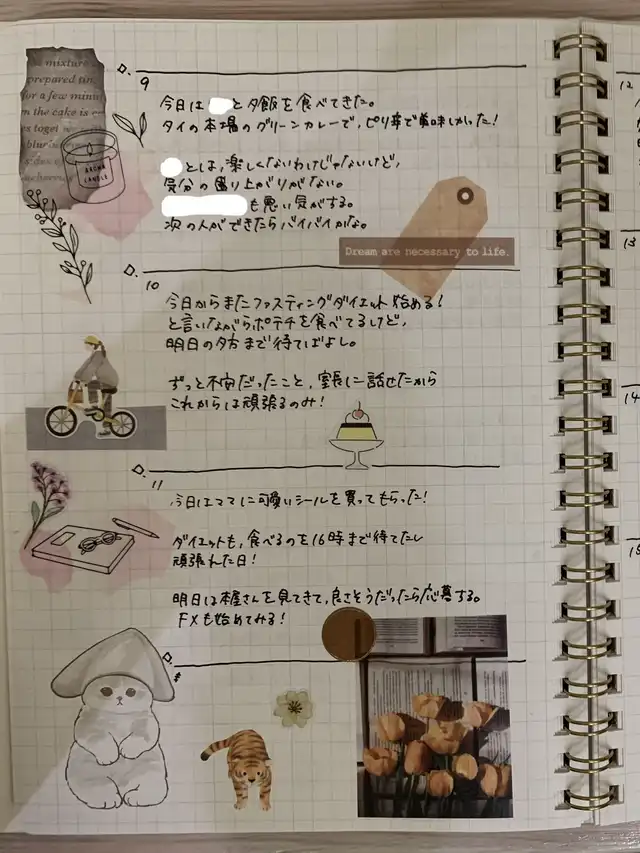 mixture
prepared tin,
for a few minut
n the cake is
es toget
AROMA
CANDLE
9
今日は と夕飯を食べてきた。
タイの本場のグリーンカレーで、ピリ辛で美味しかった!
とは、楽しくないわけじゃないけど、
気分の盛り上がりがない。
も悪い気がする。
次の人ができたらバイバイかな。
Dream are necessary to life.
10
今日からまたファスティングダイエット始める!
と言いながらポテチを食べてるけど、
明日の夕方まで待てばよし。
ずっと不安だったこと、室長に話せたから
これからは頑張るのみ!
11
今日はママに可愛いシールを買ってもらった!
ダイエットも、食べるのを16時まで待てたし
頑張れた日!
明日は本屋さんを見てきて、良さそうだったら応募する。
FXも始めてみる!
12
13
14
15